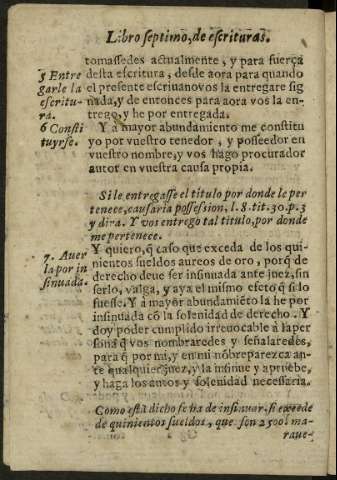 Libro septimo, de escrituras.
tomassedes actualmente, y para fuerça
5 Entre
garle la
escritu-
ra.
desta escritura, desde aora para quando
el presente escriuano vos la entregare sig
nada, y de entonces para aora vos la en-
trego, y he por entregada.
6 Consti
tuyrse.
Y a mayor abundamiento me constitu
yo por vuestro tenedor, y posseedor en
vuestro nombre, y vos hago procurador
autor en vuestra causa propia.
Si le entregasse el titulo por donde le per
tenece, causaria possession, l. 8. tit. 30. p. 3
y dira. Y vos entrego tal titulo, por donde
me pertenece.
7. Auer
la por in
sinuada.
Y quiero, q̃ caso que exceda de los qui-
nientos sueldos aureos de oro, porq̃ de
derecho deue ser insinuada ante juez, sin
serlo, valga, y aya el mismo efeto q̃ si lo
fuesse. Y a mayor abundamiẽto la he por
insinuada cõ la solenidad de derecho. Y
doy poder cumplido irreuocable à la per
sona q̃ vos nombraredes y señalaredes,
para q̃ por mi, y en mi nõbre parezca an-
te qualquier juez, y la insinue y aprueue,
y haga los autos y solenidad necessaria.
Como està dicho se ha de insinuar, si excede
de quinientos sueldos, que son 2500l ma-
raue-